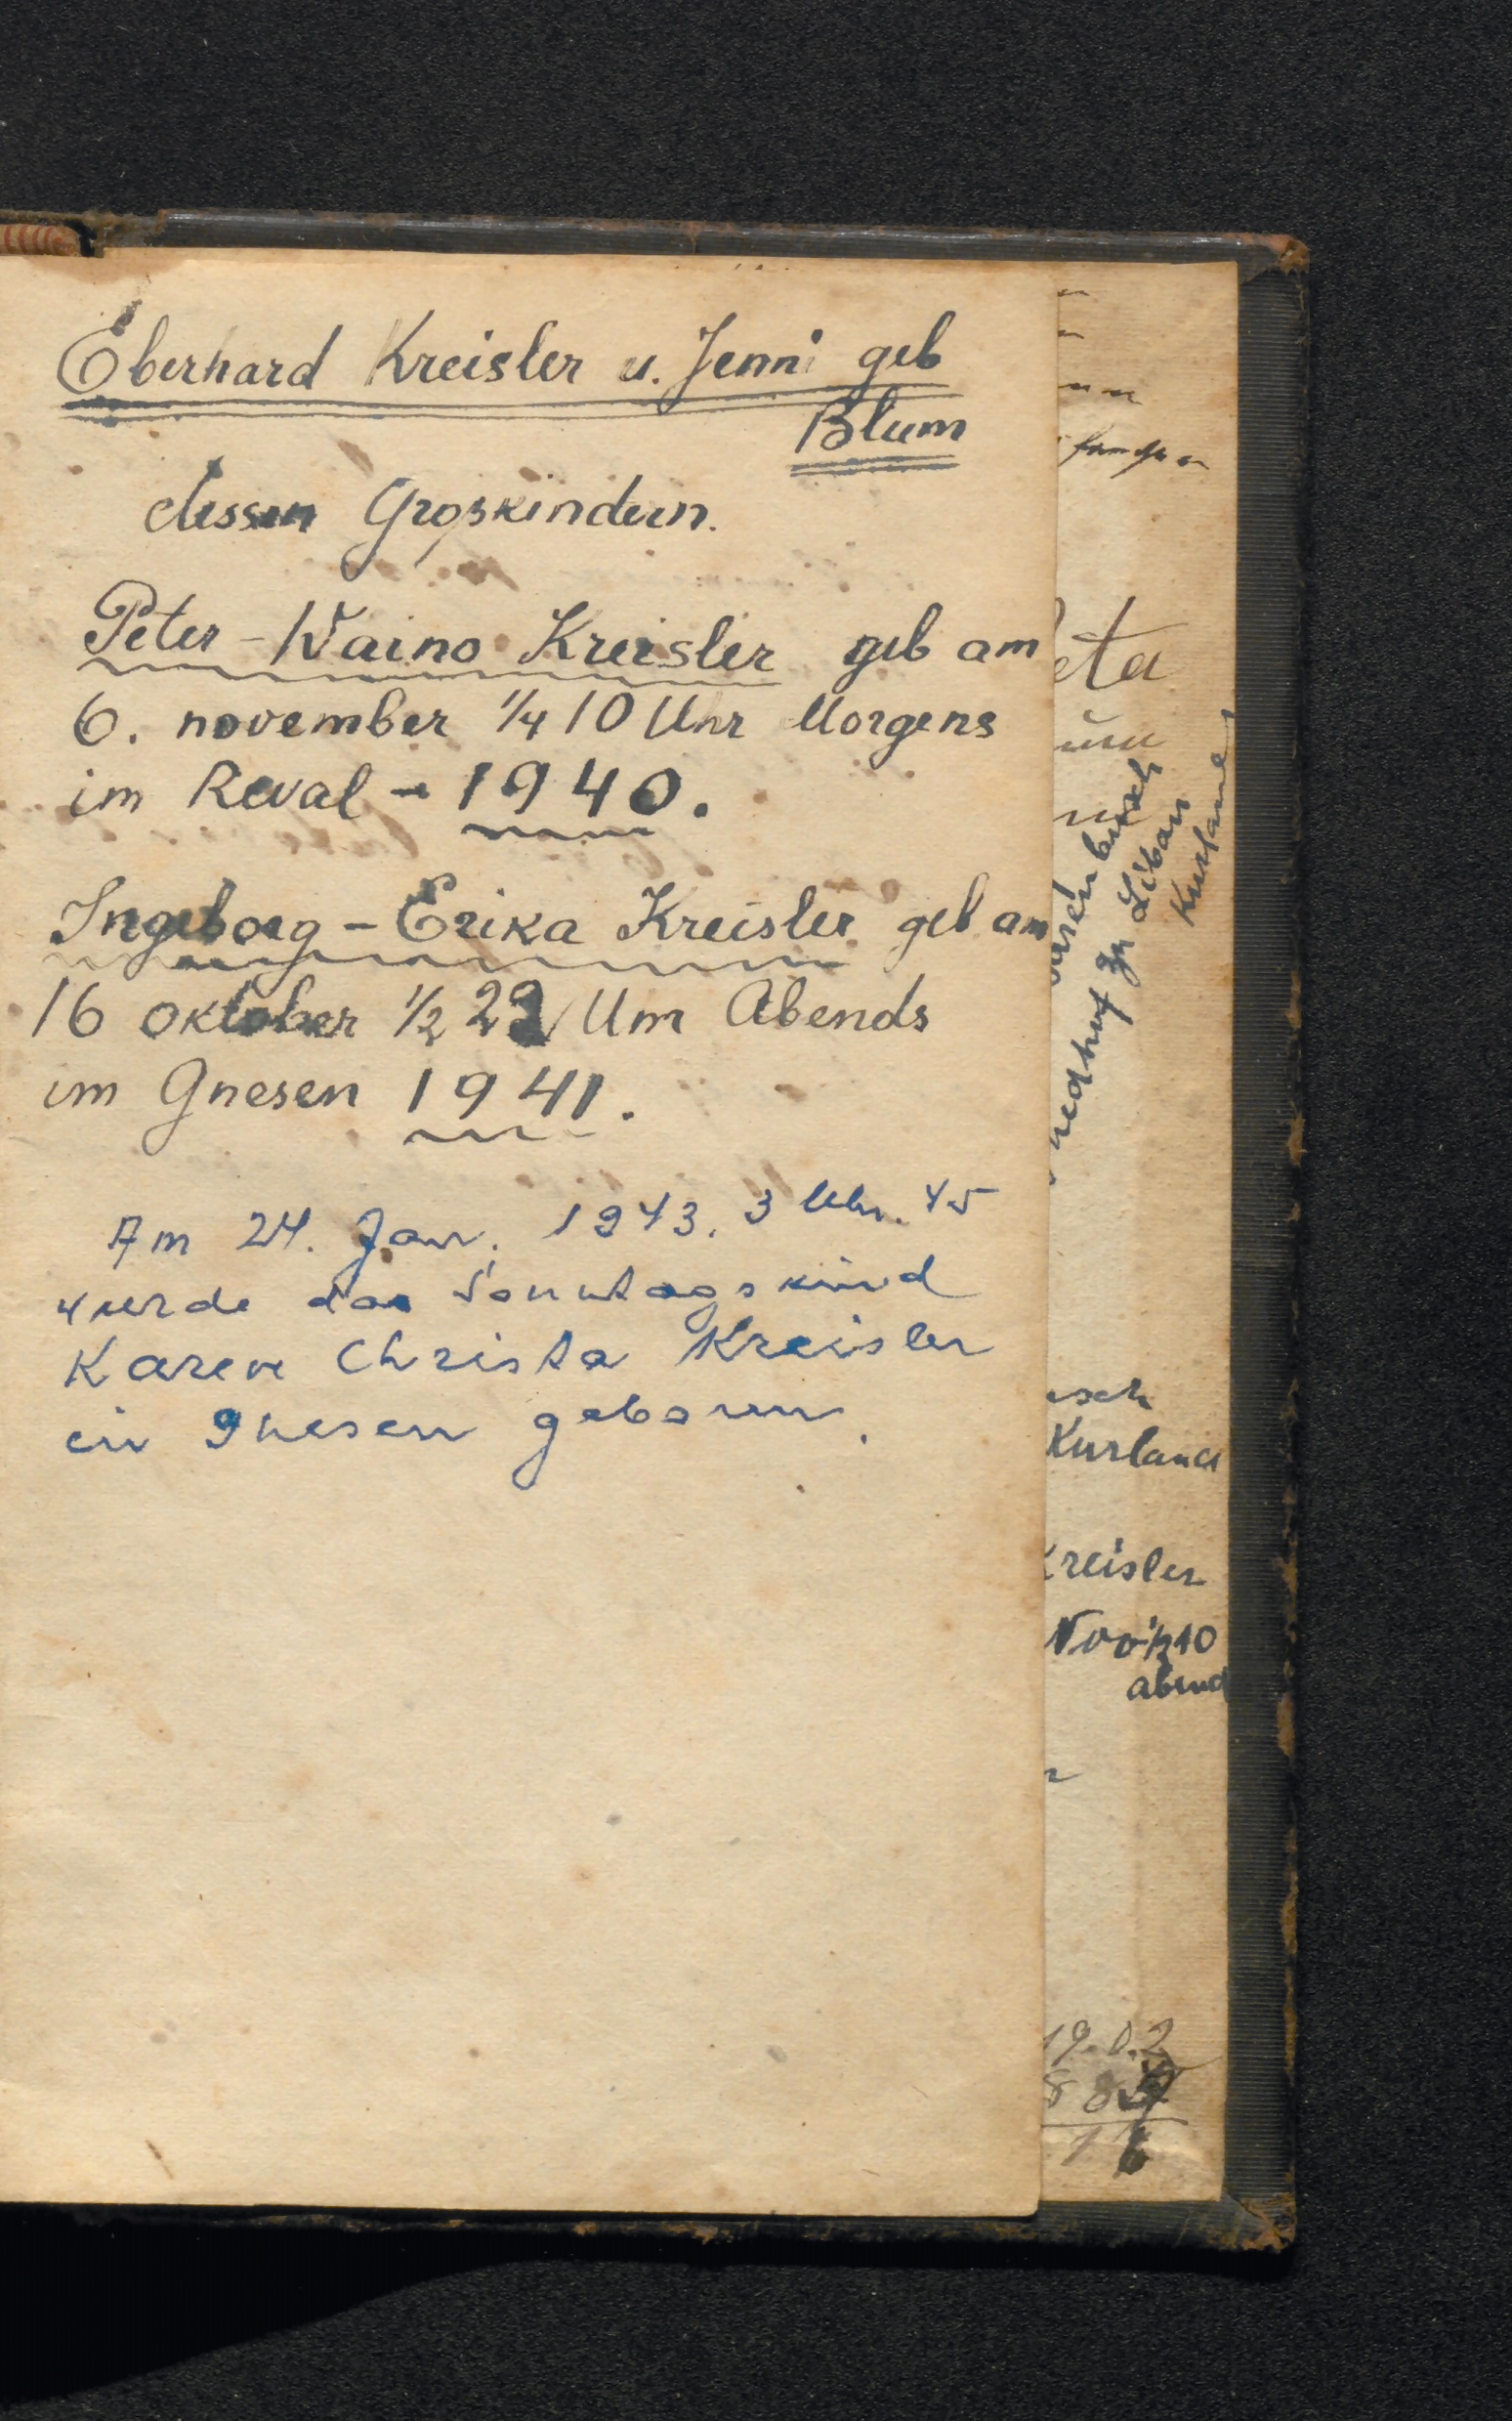 Eberhard Kreisler u. Jenni geb
Blum
dessen Groskindern.
Peter-Waino Kreisler geb am
6. november 1/4 10 Uhr Morgens
im Reval - 1940.
Ingeborg-Erika Kreisler geb am
16 oktober 1/2 22 Um Abends
im Gnesen 1941.
Am 24. Jan. 1943. 3 Uhr. 45
wurde das Sonntagskind
Karen Christa Kreisler
in Gnesen geboren.
eta
zu Libau
esch
Kurland
Kreisler
Nov 1/2 10
abend
19.0.2